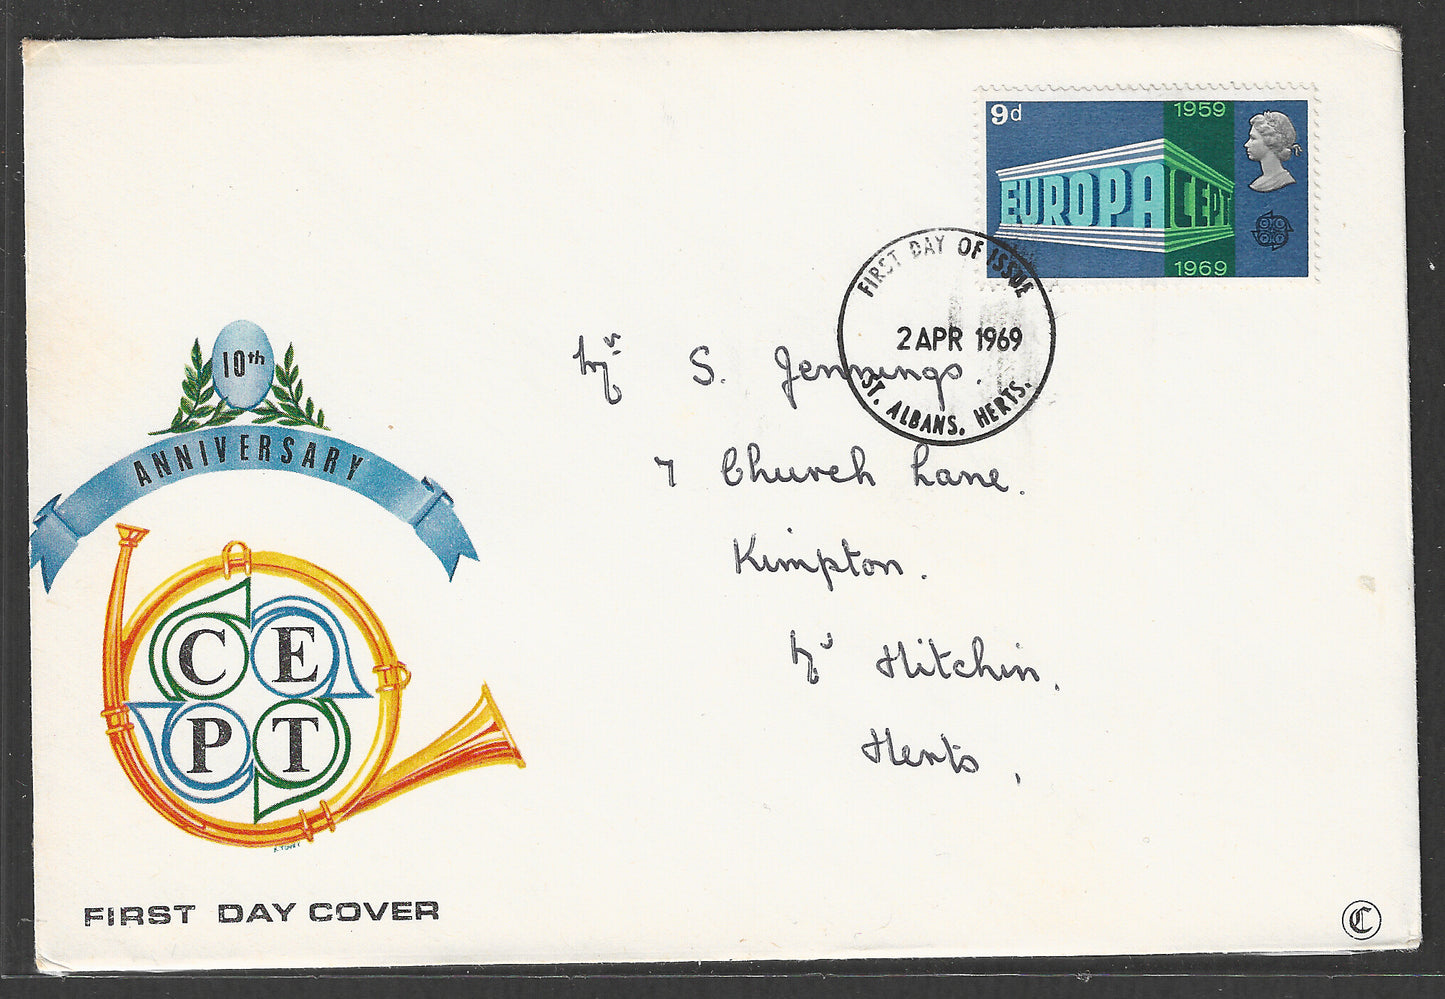 9d
1959
EUROPA CEPT
1969
FIRST DAY OF ISSUE
2 APR 1969
ST. ALBANS, HERTS.
10th
ANNIVERSARY
Mr S. Jennings.
7 Church Lane.
Kimpton.
Nr Hitchin.
Herts,
C E
P T
FIRST DAY COVER
C